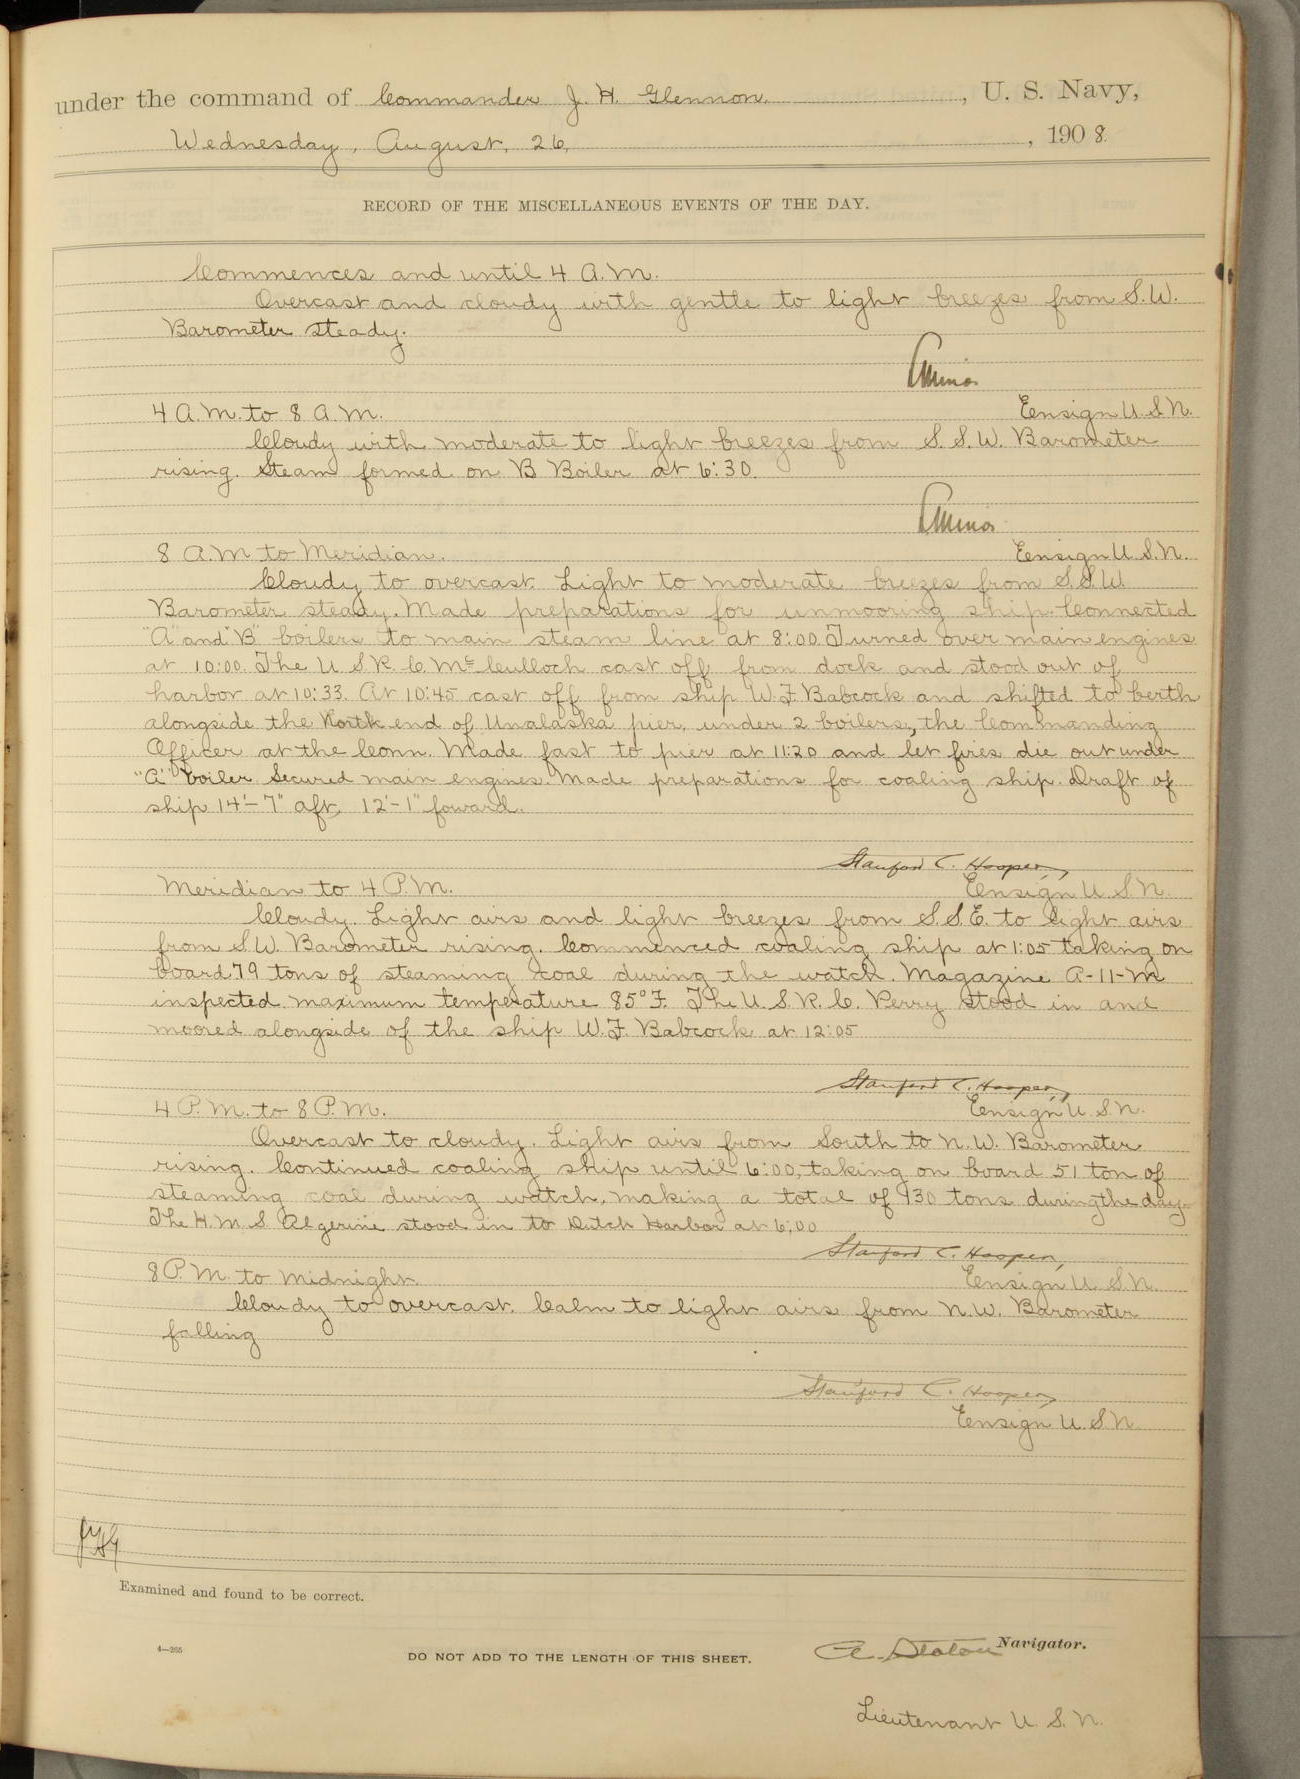 under the command of Commander J. H. Glennon, U. S. Navy,
Wednesday, August, 26, , 1908.
RECORD OF THE MISCELLANEOUS EVENTS OF THE DAY.
Commences and until 4 A.M.
Overcast and cloudy with gentle to light breezes from S.W.
Barometer steady.
4 A.M. to 8 A.M. Eensign U.S.N.
Cloudy with moderate to light breezes from S.S.W. Barometer
rising. Steam formed on B Boiler at 6:30.
8 A.M to Meridian. Eensign U.S.N.
Cloudy to overcast. Light to moderate breezes from S.S.W.
Barometer steady. Made preparations for unmooring ship. Connected
"A" and "B" boilers to main steam line at 8:00. Turned over main engines
at 10:00. The U.S.R.C. McCulloch cast off from dock and stood out of
harbor at 10:33. At 10:45 cast off from ship W.F. Babcock and shifted to berth
alongside the North end of Unalaska pier, under 2 boilers, the Commanding
Officer at the Conn. Made fast to pier at 11:20 and let fires die out under
"A" boiler. Secured main engines. Made preparations for coaling ship. Draft of
ship 14'-7" aft, 12'-1" foward.
Stanford C. Hooper,
Meridian to 4 P.M. Eensign U.S.N.
Cloudy. Light airs and light breezes from S.S.E. to light airs
from S.W. Barometer rising. Commenced coaling ship at 1:05 taking on
board 79 tons of steaming coal during the watch. Magazine A-11-M
inspected maximum temperature 85°F. The U.S.R.C. Perry stood in and
moored alongside of the ship W.F. Babcock at 12:05
Stanford C. Hooper,
4 P.M. to 8 P.M. Eensign U.S.N.
Overcast to cloudy. Light airs from South to N.W. Barometer
rising. Continued coaling ship until 6:00, taking on board 51 ton of
steaming coal during watch, making a total of 130 tons during the day.
The H.M.S. Algerine stood in to Dutch Harbor at 6:00
Stanford C. Hooper,
8 P.M. to Midnight. Eensign U.S.N.
Cloudy to overcast. Calm to light airs from N.W. Barometer
falling
Stanford C. Hooper,
Eensign U.S.N.
Examined and found to be correct.
4—265
DO NOT ADD TO THE LENGTH OF THIS SHEET.
Navigator.
Lieutenant U.S.N.